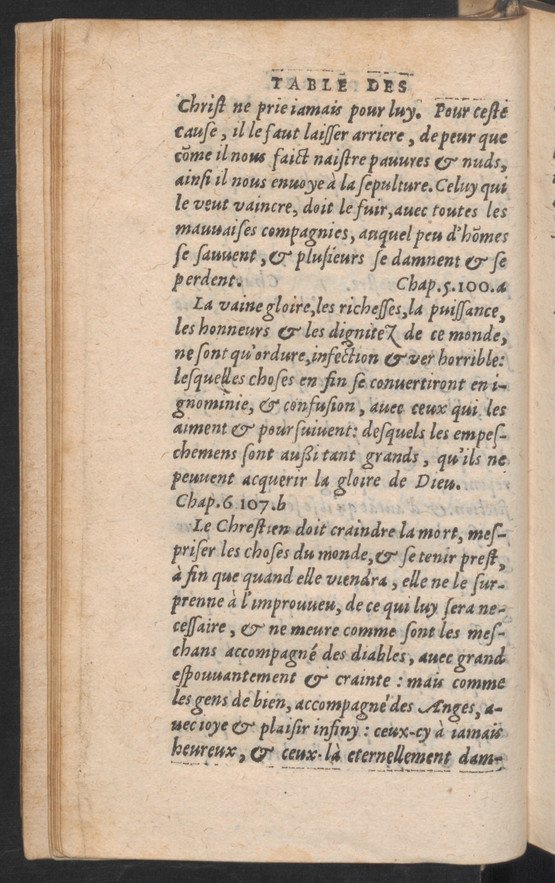 TABLE DES
Chriſt ne prie iamais pour luy. Pour ceſte
cauſe, il le faut laiſſer arriere, de peur que
cõme il nous faict naiſtre pauures & nuds,
ainſi il nous enuoye à la ſepulture. Celuy qui
le veut vaincre, doit le fuir, auec toutes les
mauuaiſes compagnies, auquel peu d'hõmes
ſe ſauuent, & pluſieurs ſe damnent & ſe
perdent. Chap. 5. 100. a
La vaine gloire, les richeſſes, la puiſſance,
les honneurs & les dignitez de ce monde,
ne ſont qu'ordure, infection & ver horrible:
leſquelles choſes en fin ſe conuertiront en i-
gnominie, & confuſion, auec ceux qui les
aiment & pourſuiuent: deſquels les empeſ-
chemens ſont außi tant grands, qu'ils ne
peuuent acquerir la gloire de Dieu.
Chap. 6 107. b
Le Chreſtien doit craindre la mort, meſ-
priſer les choſes du monde, & ſe tenir preſt,
à fin que quand elle viendra, elle ne le ſur-
prenne à l'improuueu, de ce qui luy ſera ne-
ceſſaire, & ne meure comme ſont les meſ-
chans accompagné des diables, auec grand
eſpouuantement & crainte: mais comme
les gens de bien, accompagné des Anges, a-
uec ioye & plaiſir infiny: ceux-cy à iamais
heureux, & ceux-là eternellement dam-